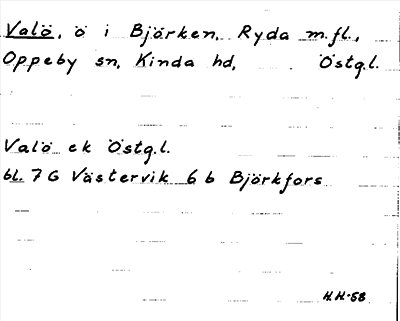 Valö, ö i Björken, Ryda m.fl.,
Oppeby sn, Kinda hd, Östg.l.
Valö ek Östg.l.
bl. 7 G Västervik 6 b Björkfors
H.H-58